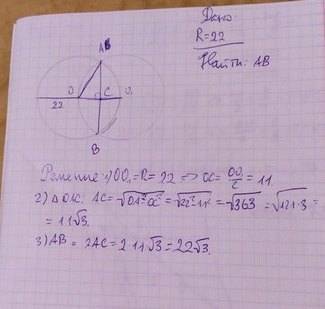 Дано:
R=22
Найти: AB
A B
22 O C O₁
B
Решение: 1) OO₁=R= 22 => OC= OO₁/2 = 11.
2) △ OAC: AC=√OA²-OC²=√22²-11²=√363 =√121·3=
= 11√3.
3) AB = 2AC= 2·11√3=22√3.